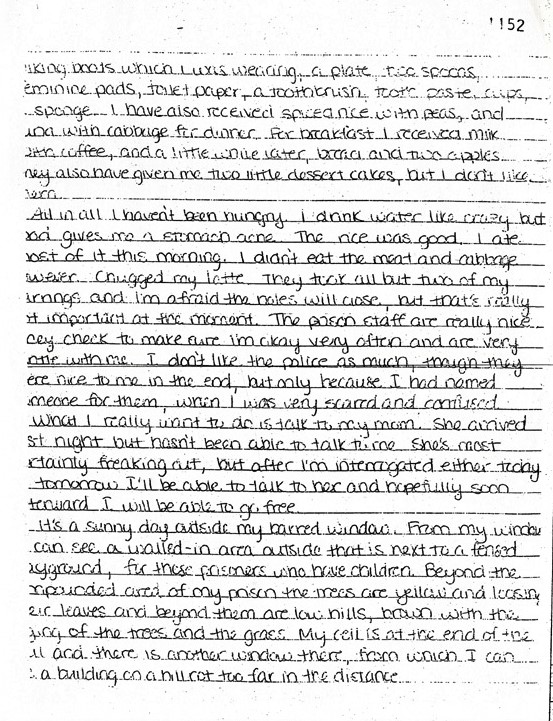 '152
iking boots which I was wearing, a plate, two spoons,
eminine pads, toilet paper, a toothbrush, tooth paste, cups,
sponge. I have also received spiced rice with peas, and
and with cabbage for dinner. For breakfast I received milk
coffee, and a little while later, bread and two apples.
hey also have given me two little dessert cakes, but I don't like
hem.
All in all I haven't been hungry. I drink water like crazy but
gives me a stomach ache. The rice was good. I ate
ost of it this morning. I didn't eat the meat and cabbage
wever. Chugged my latte. They took all but two of my
arrings and I'm afraid the holes will close, but that's really
t important at the moment. The prison staff are really nice
ey check to make sure I'm okay very often and are very
ntle with me. I don't like the police as much, though they
ere nice to me in the end, but only because I had named
meone for them, when I was very scared and confused.
What I really want to do is talk to my mom. She arrived
st night but hasn't been able to talk to me. She's most
rtainly freaking out, but after I'm interrogated either today
tomorrow I'll be able to talk to her and hopefully soon
terward I will be able to go free.
It's a sunny day outside my barred window. From my window
can see a walled-in area outside that is next to a fensed
ayground, for those prisoners who have children. Beyond the
mpounded area of my prison the trees are yellow and loosing
eir leaves and beyond them are low hills, brown with the
ing of the trees and the grass. My cell is at the end of the
ll and there is another window there, from which I can
a building on a hill not too far in the distance.